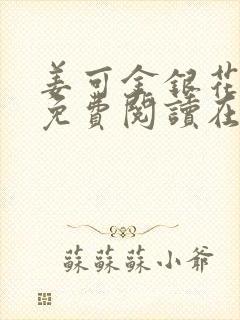 姜可金銀花
免費閱讀在
蘇蘇蘇小爺